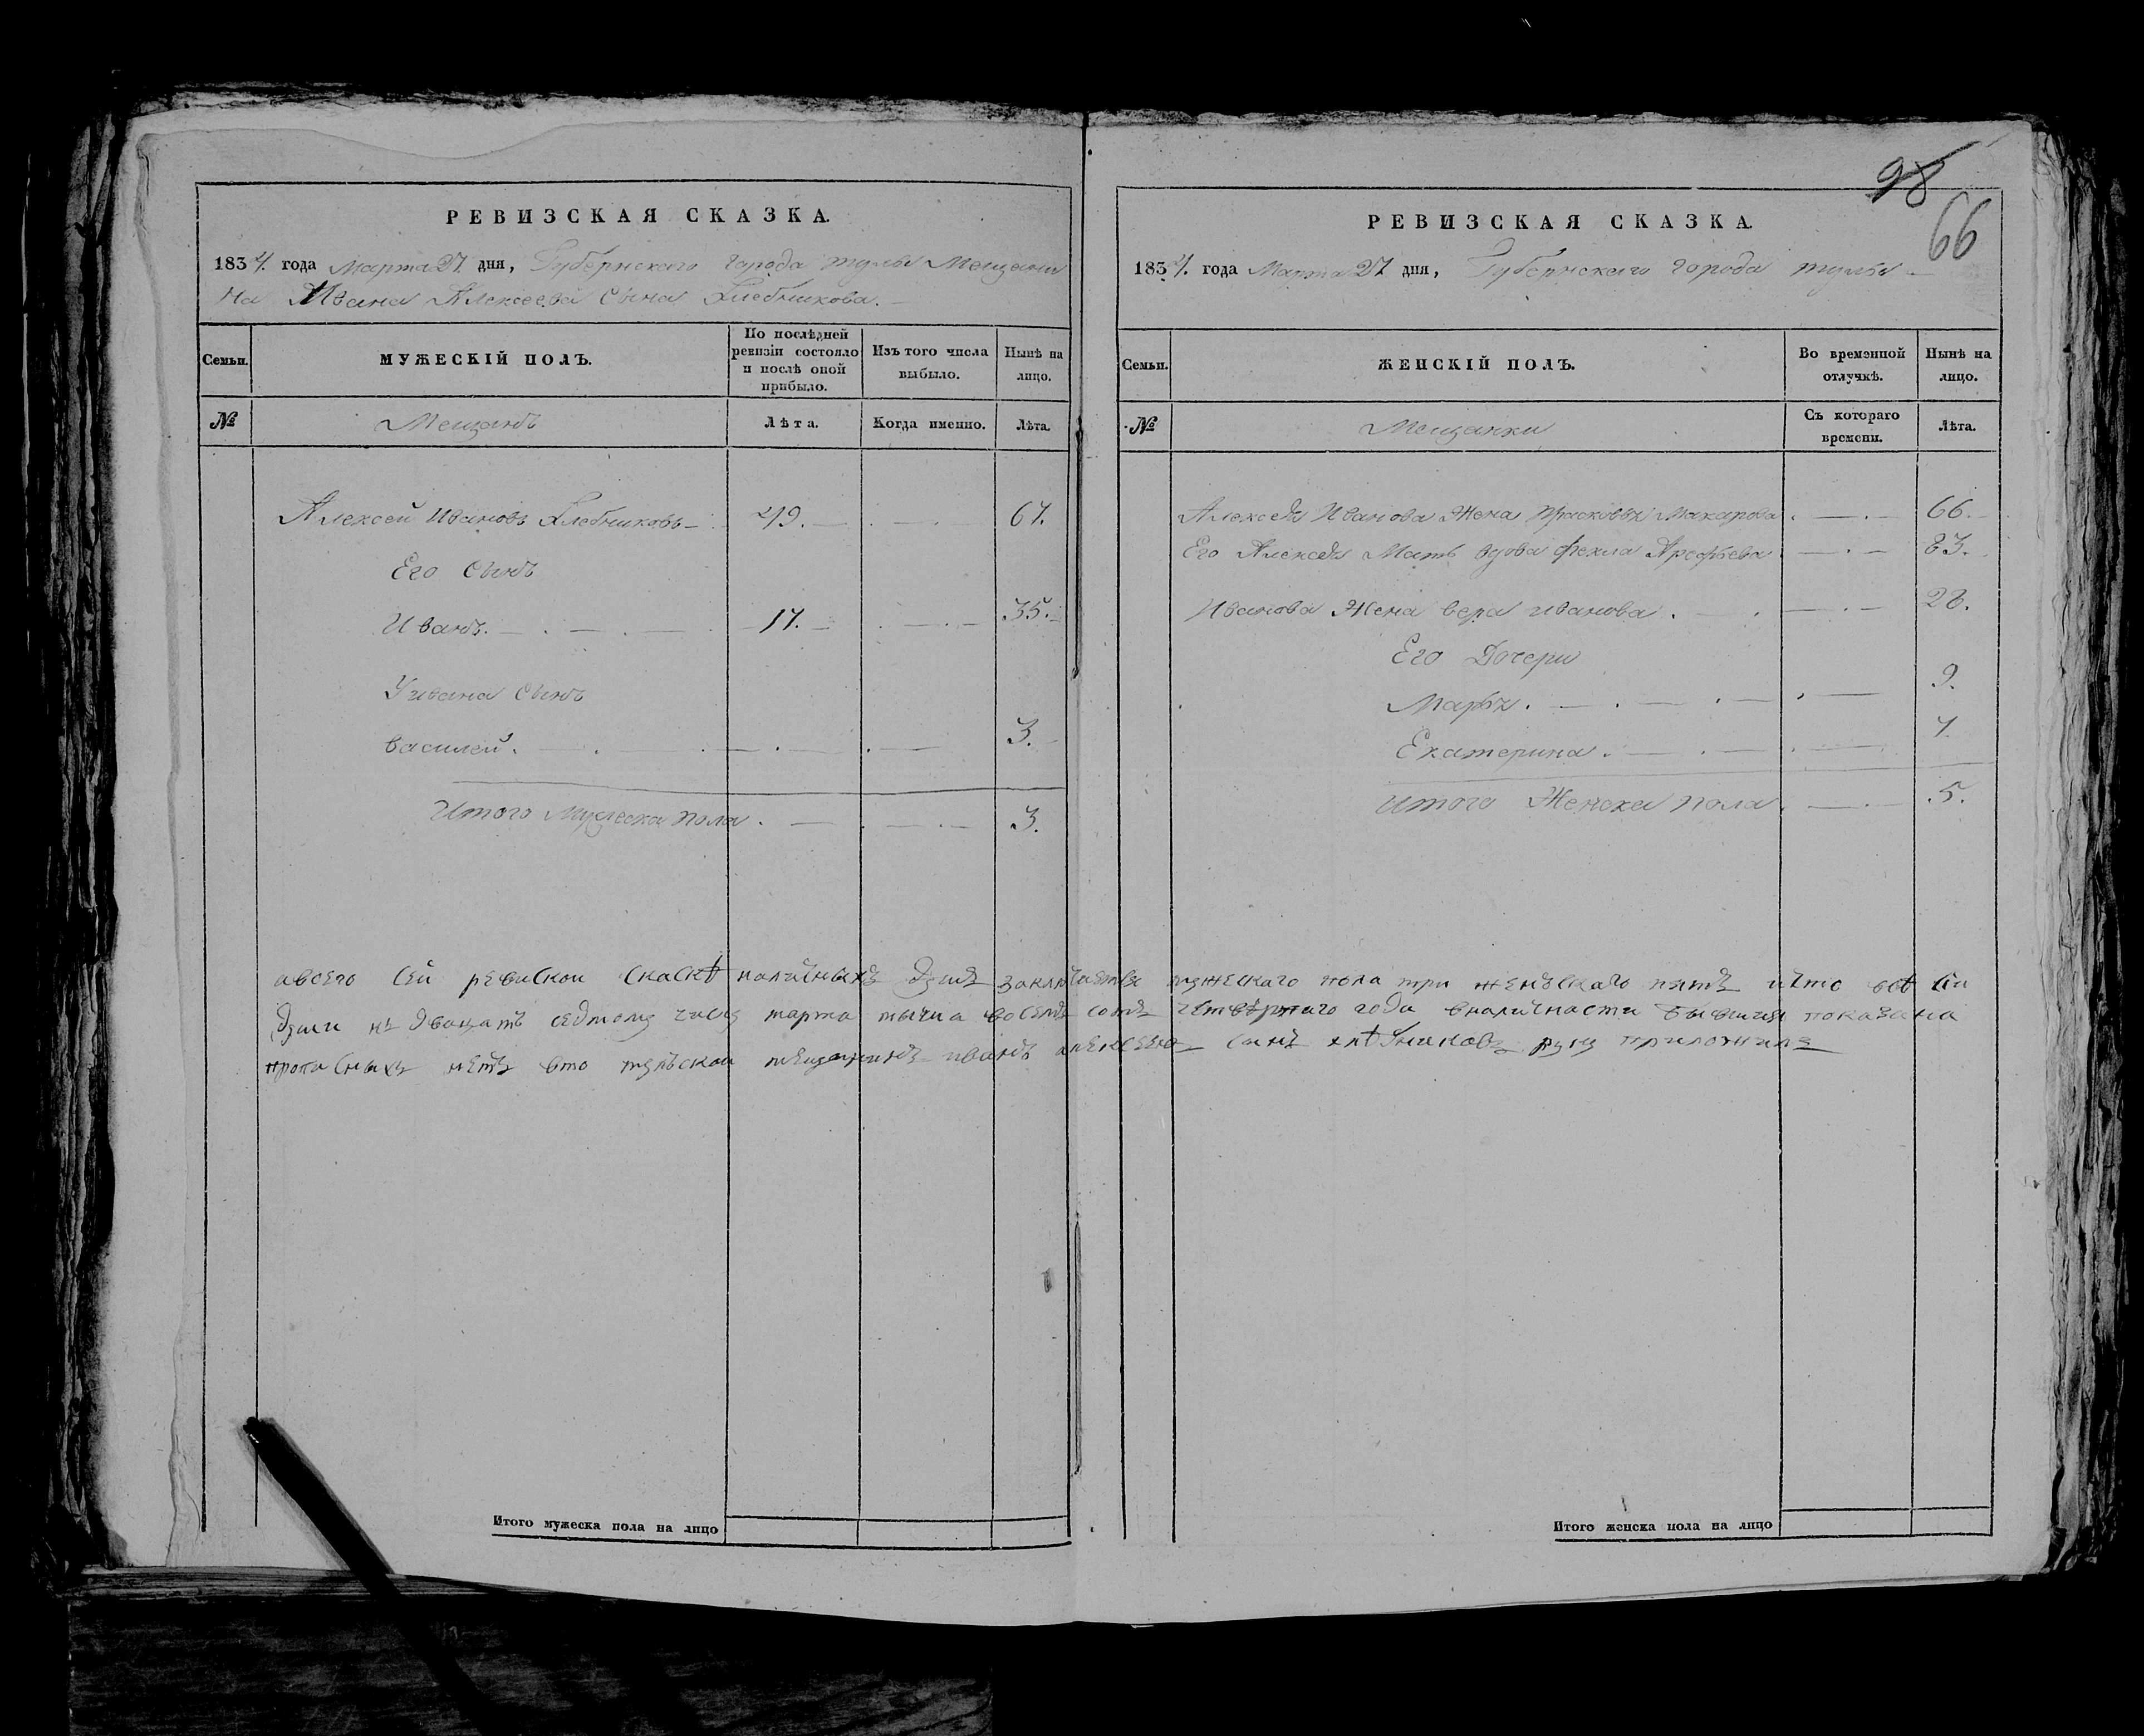 98
66
РЕВИЗСКАЯ СКАЗКА.
1834. года Марта 27. дня, Губернскаго города тулы Мещани
на Ивана Алексеева Сына Хлебникова.
Семьи.
МУЖЕСКІЙ ПОЛЪ.
По послѣдней ревизіи состояло и послѣ оной прибыло.
Изъ того числа выбыло.
Нынѣ на лицо.
№
Мещанъ
Лѣта.
Когда именно.
Лѣта.
Алексей Ивановъ Хлебниковъ 49. 67.
Его Сынъ
Иванъ. 17. 35.
У ивана Сынъ
василей. 3.
Итого Мужеска пола. 3.
Итого мужеска пола на лицо
РЕВИЗСКАЯ СКАЗКА.
1834. года Марта 27. дня, Губернскаго города тулы
Семьи.
ЖЕНСКІЙ ПОЛЪ.
Во временной отлучкѣ.
Нынѣ на лицо.
№
Мещанки
Съ котораго времени.
Лѣта.
Алексея Иванова Жена Прасковья Макарова 66.
Его Алексея Мать вдова Фекла Арефьева 83.
Иванова Жена вера иванова. 28.
Его Дочери
Марья. 9.
Екатерина. 7.
Итого Женска пола. 5.
авсего сей ревиской скаскѣ наличныхъ душъ заключается мужескаго пола три женъскаго пять ичто всѣ сии
души къ двацать седмому числу марта тысеча восемъ сотъ четвертаго года вналичности бывшия показана
прописныхъ нетъ вто тулъской мещанинъ иванъ алексеевъ сынъ хлѣбниковъ руку приложилъ
Итого женска пола на лицо